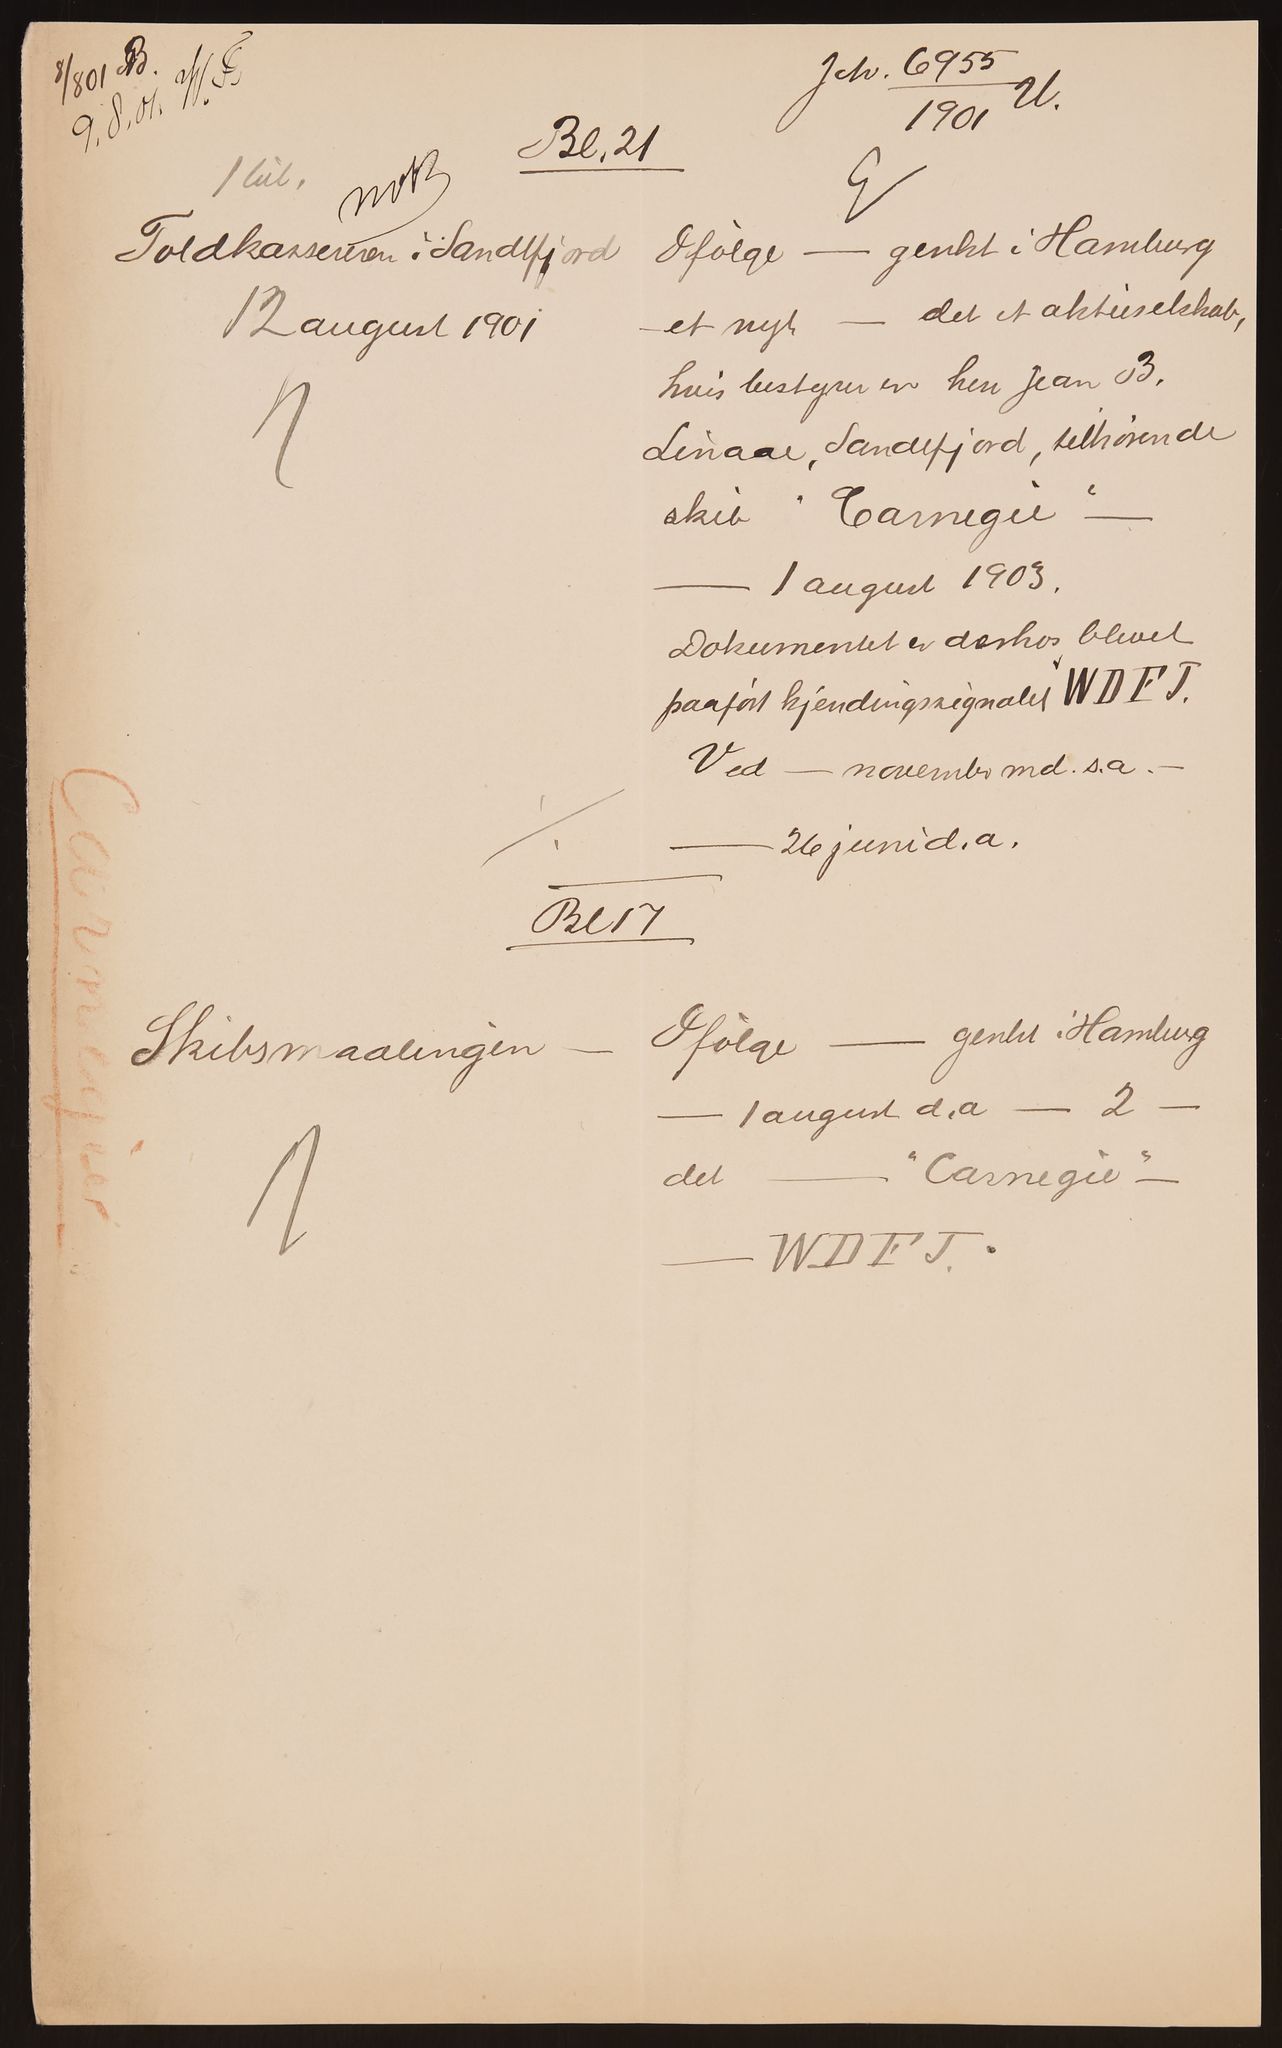 8/8 01 B.
9.8.01.
Jnr. 6955
1901 U.
Bl. 21
1 bil.
Toldkassereren i Sandefjord
12 august 1901
Ifölge — genkt i Hamburg
- et nyt — det et aktieselskab,
hvis bestyrer er herr Jean B.
Linaae, Sandefjord, tilhörende
skib "Carnegie" —
— 1 august 1903.
Dokumentet er derhos blevet
paaført kjendingssignalet WDFJ.
Ved — november md. s.a. —
— 26 juni d.a.
Bl 17
Skibsmaalingen —
Ifölge — genkt i Hamburg
— 1 august d.a — 2 —
det — "Carnegie" —
— WDFJ.
Carnegie